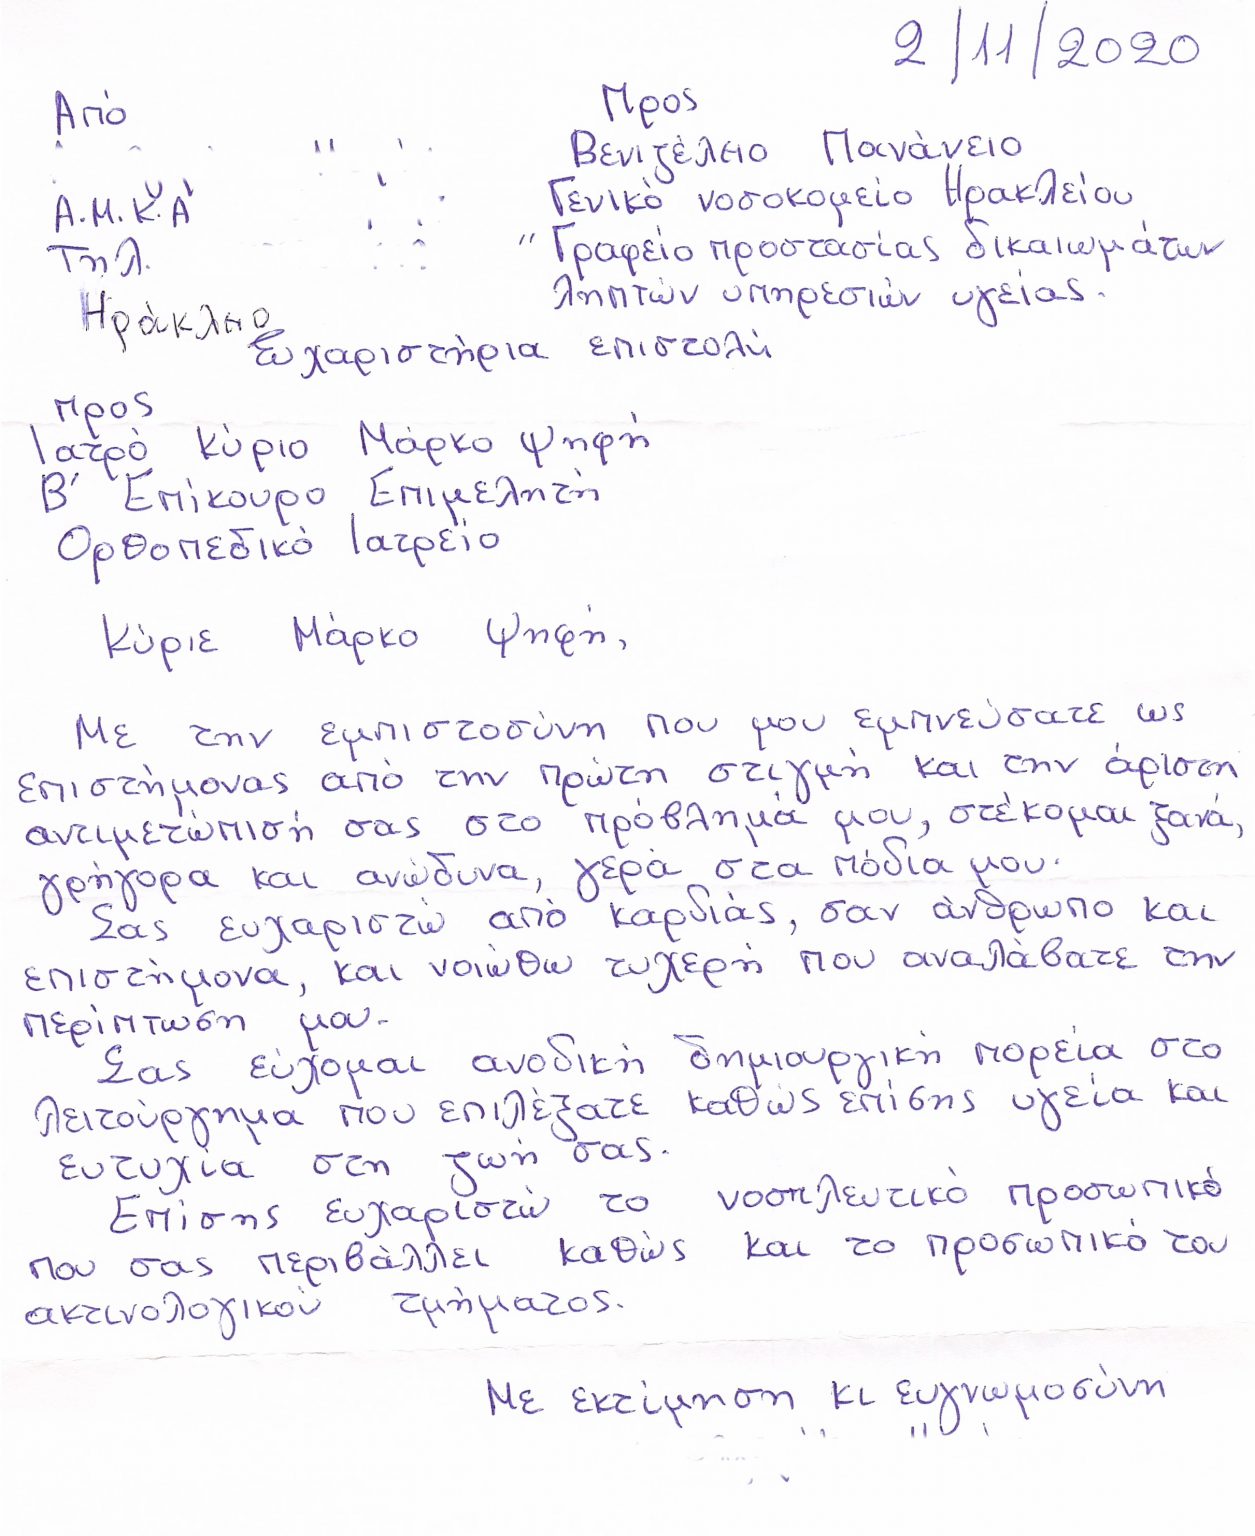 2/11/2020
Από
Προς
Βενιζέλειο Πανάνειο
Α.Μ.Κ.Α
Γενικό νοσοκομείο Ηρακλείου
Τηλ.
"Γραφείο προστασίας δικαιωμάτων
ληπτών υπηρεσιών υγείας.
Ηράκλειο
Ευχαριστήρια επιστολή
Προς
Ιατρό κύριο Μάρκο Ψηφή
Β' Επίκουρο Επιμελητή
Ορθοπεδικό Ιατρείο
Κύριε Μάρκο Ψηφή,
Με την εμπιστοσύνη που μου εμπνεύσατε ως
επιστήμονας από την πρώτη στιγμή και την άριστη
αντιμετώπισή σας στο πρόβλημά μου, στέκομαι ξανά,
γρήγορα και ανώδυνα, γερά στα πόδια μου.
Σας ευχαριστώ από καρδιάς, σαν άνθρωπο και
επιστήμονα, και νοιώθω τυχερή που αναλάβατε την
περίπτωση μου.
Σας εύχομαι ανοδική δημιουργική πορεία στο
λειτούργημα που επιλέξατε καθώς επίσης υγεία και
ευτυχία στη ζωή σας.
Επίσης ευχαριστώ το νοσηλευτικό προσωπικό
που σας περιβάλλει καθώς και το προσωπικό του
ακτινολογικού τμήματος.
Με εκτίμηση κι ευγνωμοσύνη